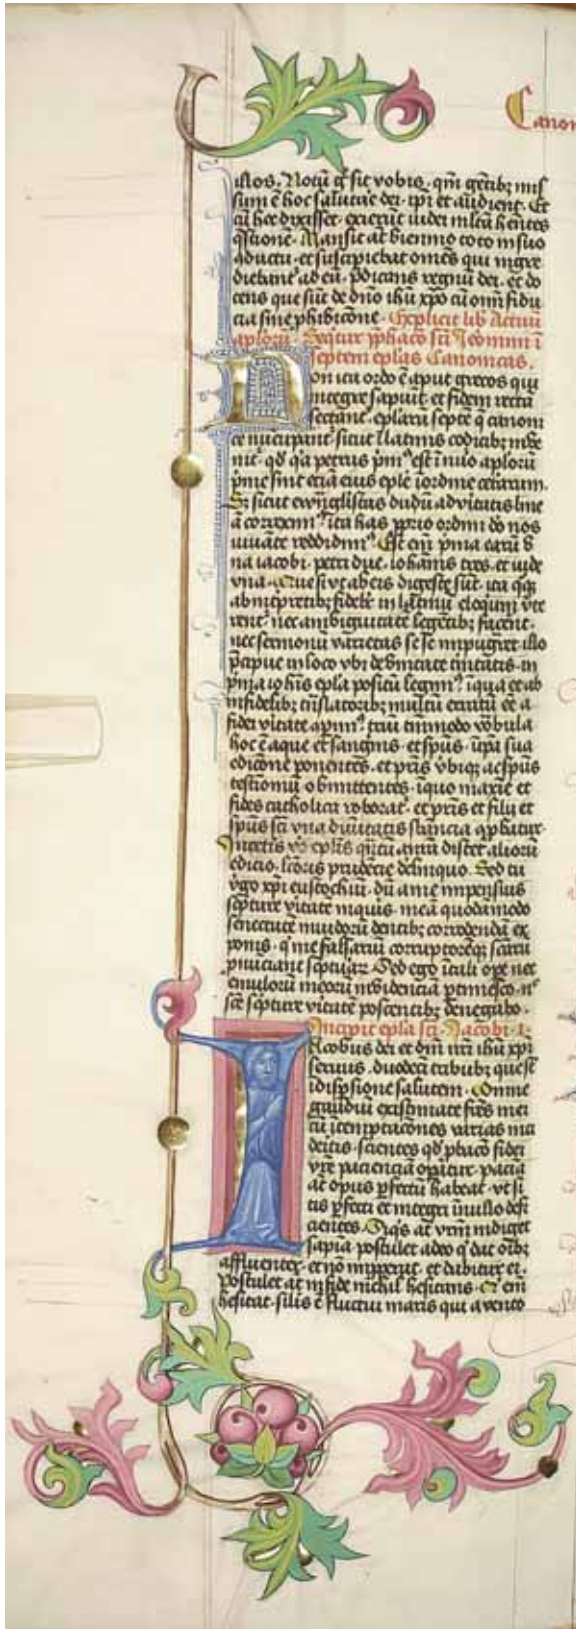 Canon
illos. Notū gͦ sit vobis. qm̄ gētibꝫ mis
sum ē hoc salutare dei. ipi et audient. Et
cū hec dixisset. exierūt iudei mltā hn̄tes
q̄stionē. Mansit aūt biennio toto in suo
ꝯductu. et suscipiebat om̄es qui ingre
diebant᷑ ad eū. p̄dicans regnū dei. et do
cens que sūt de dn̄o ihū xp̄o cū om̄i fidu
cia sine ꝓhibicōne. Explicit lib Actuū
aplorū. Sequit᷑ ꝓhaco sc̄i Jeronimi ī
septem ep̄las Canonicas.
Non ita ordo ē aput grecos qui
integre sapiūt et fidem rectā
sectant᷑. eplarū septē q̄ canoni
ce nūcupant᷑. sicut ī latinis codicibꝫ inve
nit᷑. qd̓ q̓a petrus pm̓ꝰ est ī nūo aplorū
p̓me sint eciā eius eple ī ordine ceterarum.
Sꝫ sicut ewāgelistas dudū ad v̓itatis line
ā correxim̓ꝰ. ita has ꝓprio ordini do nos
iuvāte reddidim̓ꝰ. Est em̄ p̓ma earū v̓
na iacobi. petri due. iohānis tres. et iude
vna. Que si vt ab eis digeste sūt. ita q̓qꝫ
ab int̓pretibꝫ fidelit̓ in latinū eloquiū v̓te
rent᷑. nec ambiguitatē legētibꝫ facerēt.
nec sermonū varietas sese impugnr̄et. illo
p̓cipue in loco vbi de vnitate trinitatis. in
p̓ma iohīs epla positū legim̓ꝰ. ī qua et ab
infidelibꝫ trāslatoribꝫ multū erratū eē a
fidei v̓itate cōpim̓ꝰ. triū tm̄modo vocabula
hoc ē aque et sanguis. et spūs. ī ip̄a sua
edicōne ponentes. et pr̄is vbiqꝫ ac spūs
testimoniū obmittentes. ī quo maxīe et
fides catholica roborat᷑. et pr̄is et filii et
spūs sc̄i vna divinitatis sb̄stancia cōprobat᷑.
In cetis v̓o ep̄lis q̓ntū a nrā distet alioru
edicio. lc̄oris prudēcie derelinquo. Sed tu
v̓go xp̄i eustochiū. dū a me impensius
sc̓pture v̓itatē inquiris. meā quodāmodo
senectutē invidorū dentibꝫ corrodendā ex
ponis. q̓ me falsariū corruptorēqꝫ scarū
pnūciant sc̓pturar᷑. Sed ego ī tali ope nec
emulorū meorū invidenciā ptimesco. nꝰ
sc̄e sc̓pture v̓itatē poscentibꝫ denegabo.
Incipit epla sc̄i Jacobi .1.
Iacobus dei et dn̄i nr̄i ihū xp̄i
servus. duodecī tribubꝫ que sūt
ī dispsione salutem. Omne
gaudiū existimate fr̄es mei
cū ī temptacōnes varias inci
deritis. scientes qd̓ ꝓbacō fidei
vr̄e pacienciā opātur. paciā
aūt opus ꝑfectū habeat. vt si
tis ꝑfecti et integri ī nullo defi
cientes. Siq̓s aūt vr̄m indiget
sapiā. postulet a deo q̓ dat oībꝫ
affluenter. et nō inpperat. et dabitur ei.
Postulet aūt in fide nichil hesitans. Q̓ em̄
hesitat. silis ē fluctui maris qui a vento